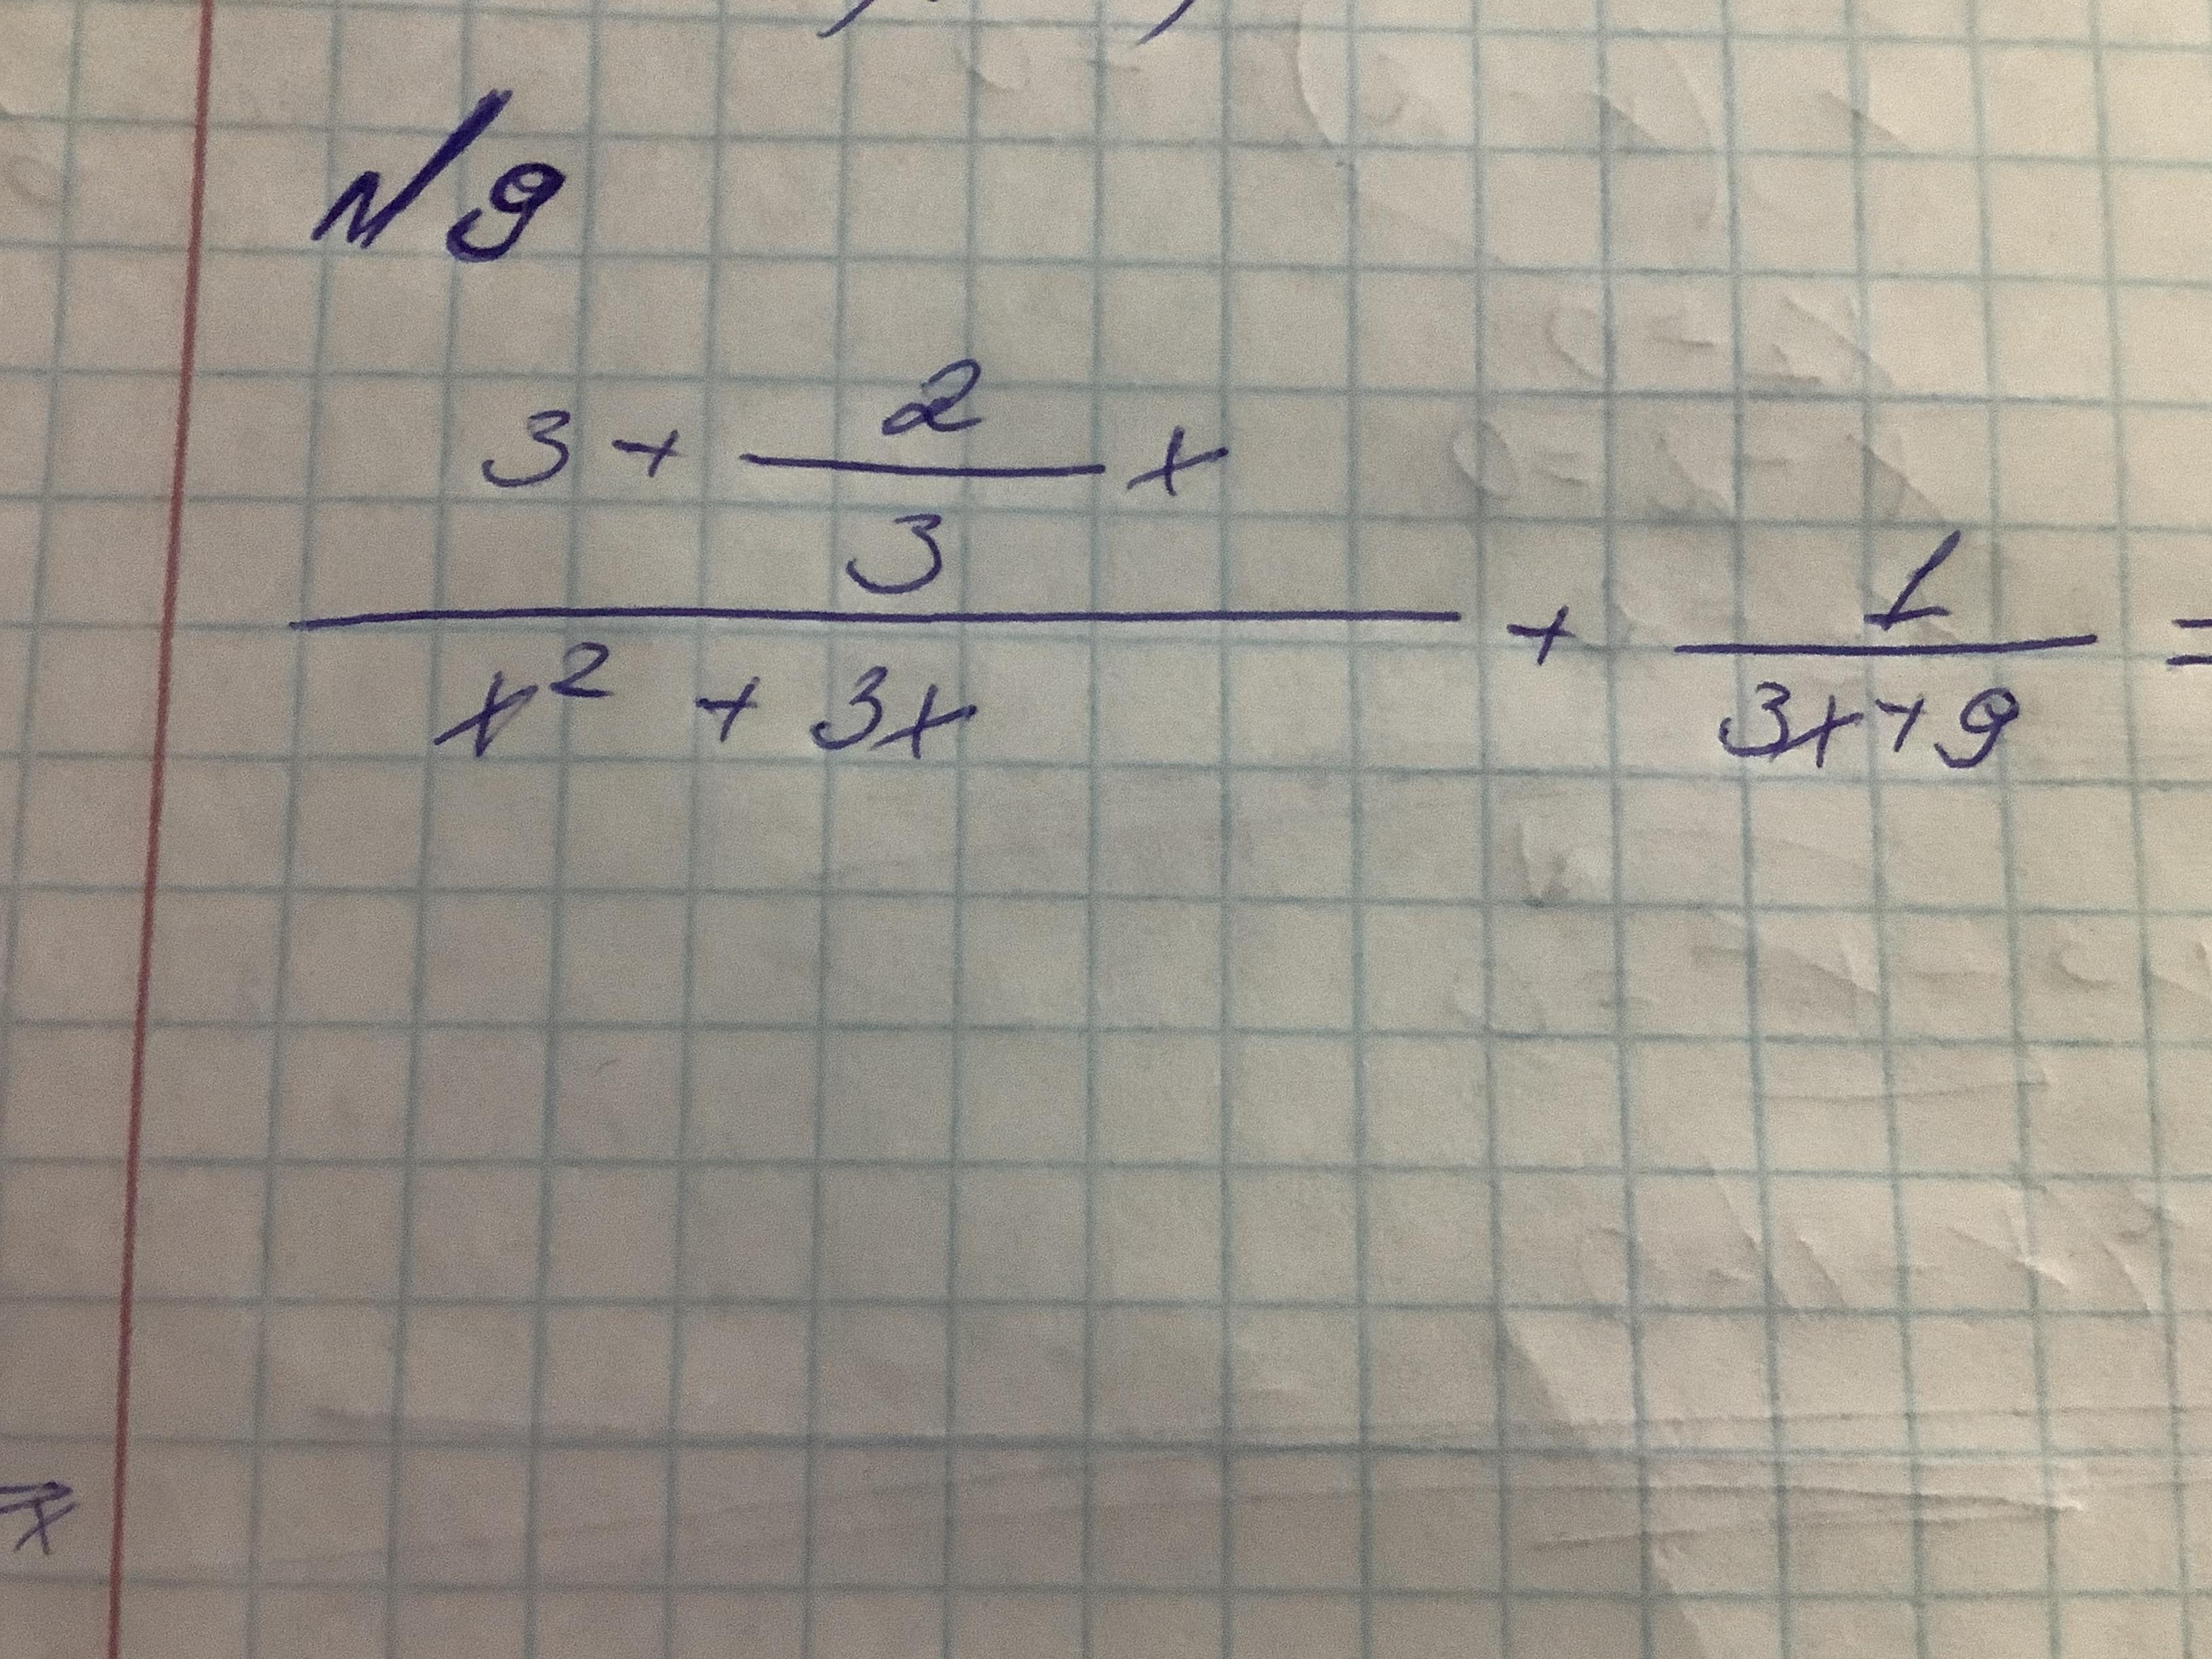 № 9
3 + 2/3 x
x² + 3x
+ 1/(3x+9) =